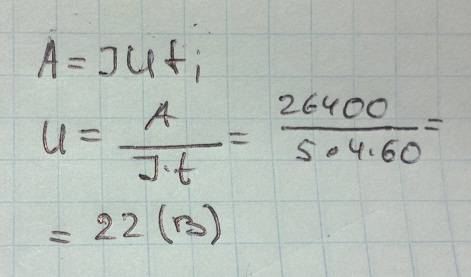 A = IUt;
U = A / I·t = 26400 / 5·4·60 =
= 22 (В)